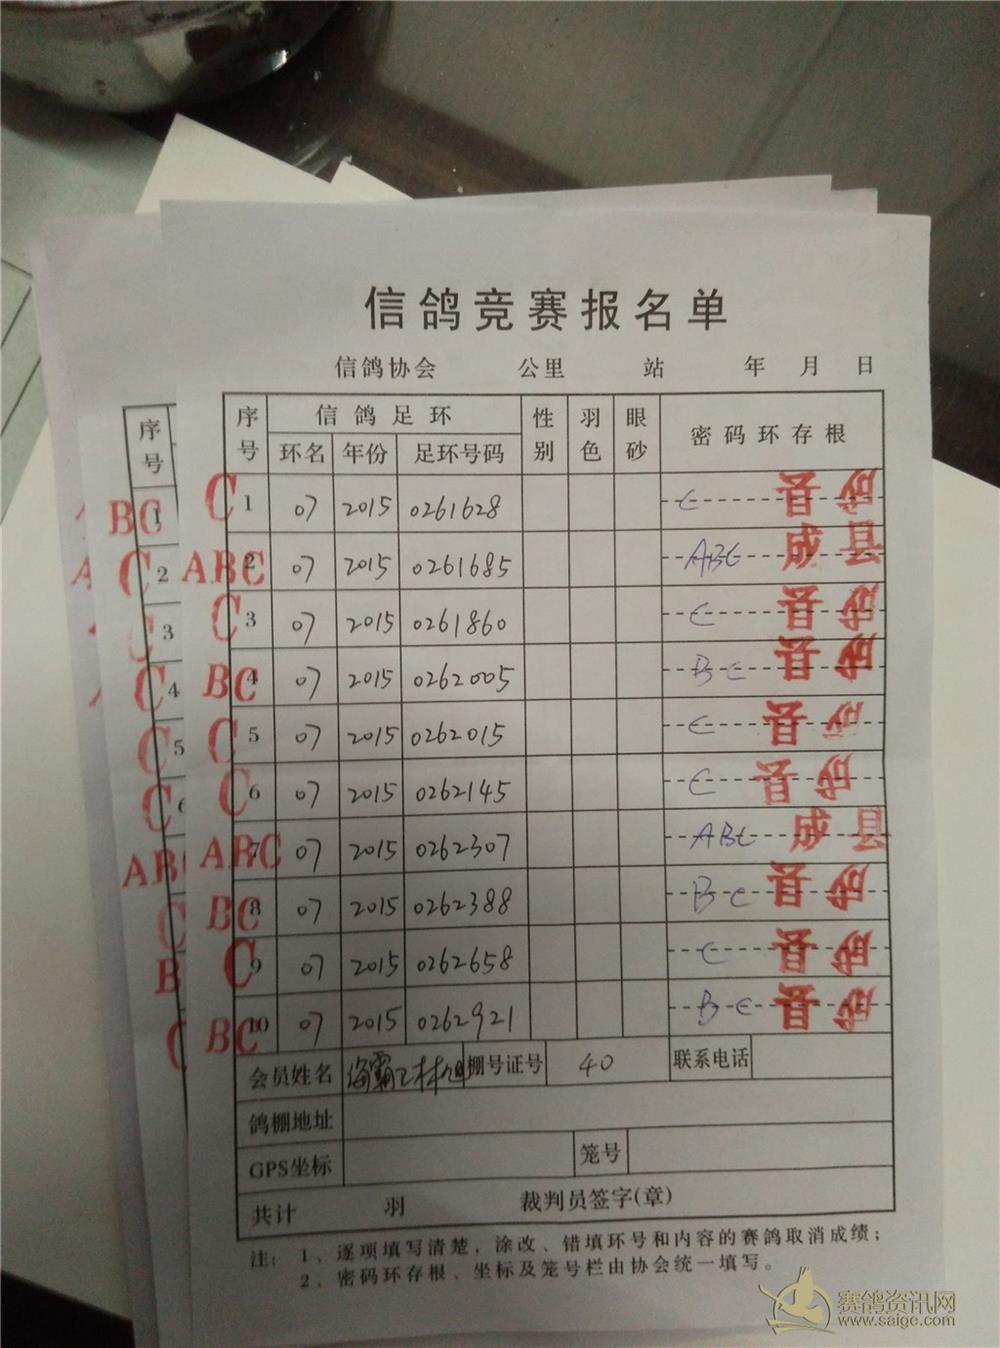 信鸽竞赛报名单
信鸽协会 公里 站 年 月 日
序号 信鸽足环 性别 羽色 眼砂 密码环存根
环名 年份 足环号码
C 1 07 2015 0261628 C
ABC 2 07 2015 0261685 ABC 成县
C 3 07 2015 0261860 C
BC 4 07 2015 0262005 B C
C 5 07 2015 0262015 C
C 6 07 2015 0262145 C
ABC 7 07 2015 0262307 ABC 成县
BC 8 07 2015 0262388 B C
C 9 07 2015 0262658 C
BC 10 07 2015 0262921 B C
会员姓名 棚号证号 40 联系电话
鸽棚地址
GPS坐标 笼号
共计 羽 裁判员签字(章)
注: 1、逐项填写清楚，涂改、错填环号和内容的赛鸽取消成绩；
2、密码环存根、坐标及笼号栏由协会统一填写。
序号
BC 1
C 2
C 3
C 4
C 5
C 6
赛鸽资讯网
www.saige.com